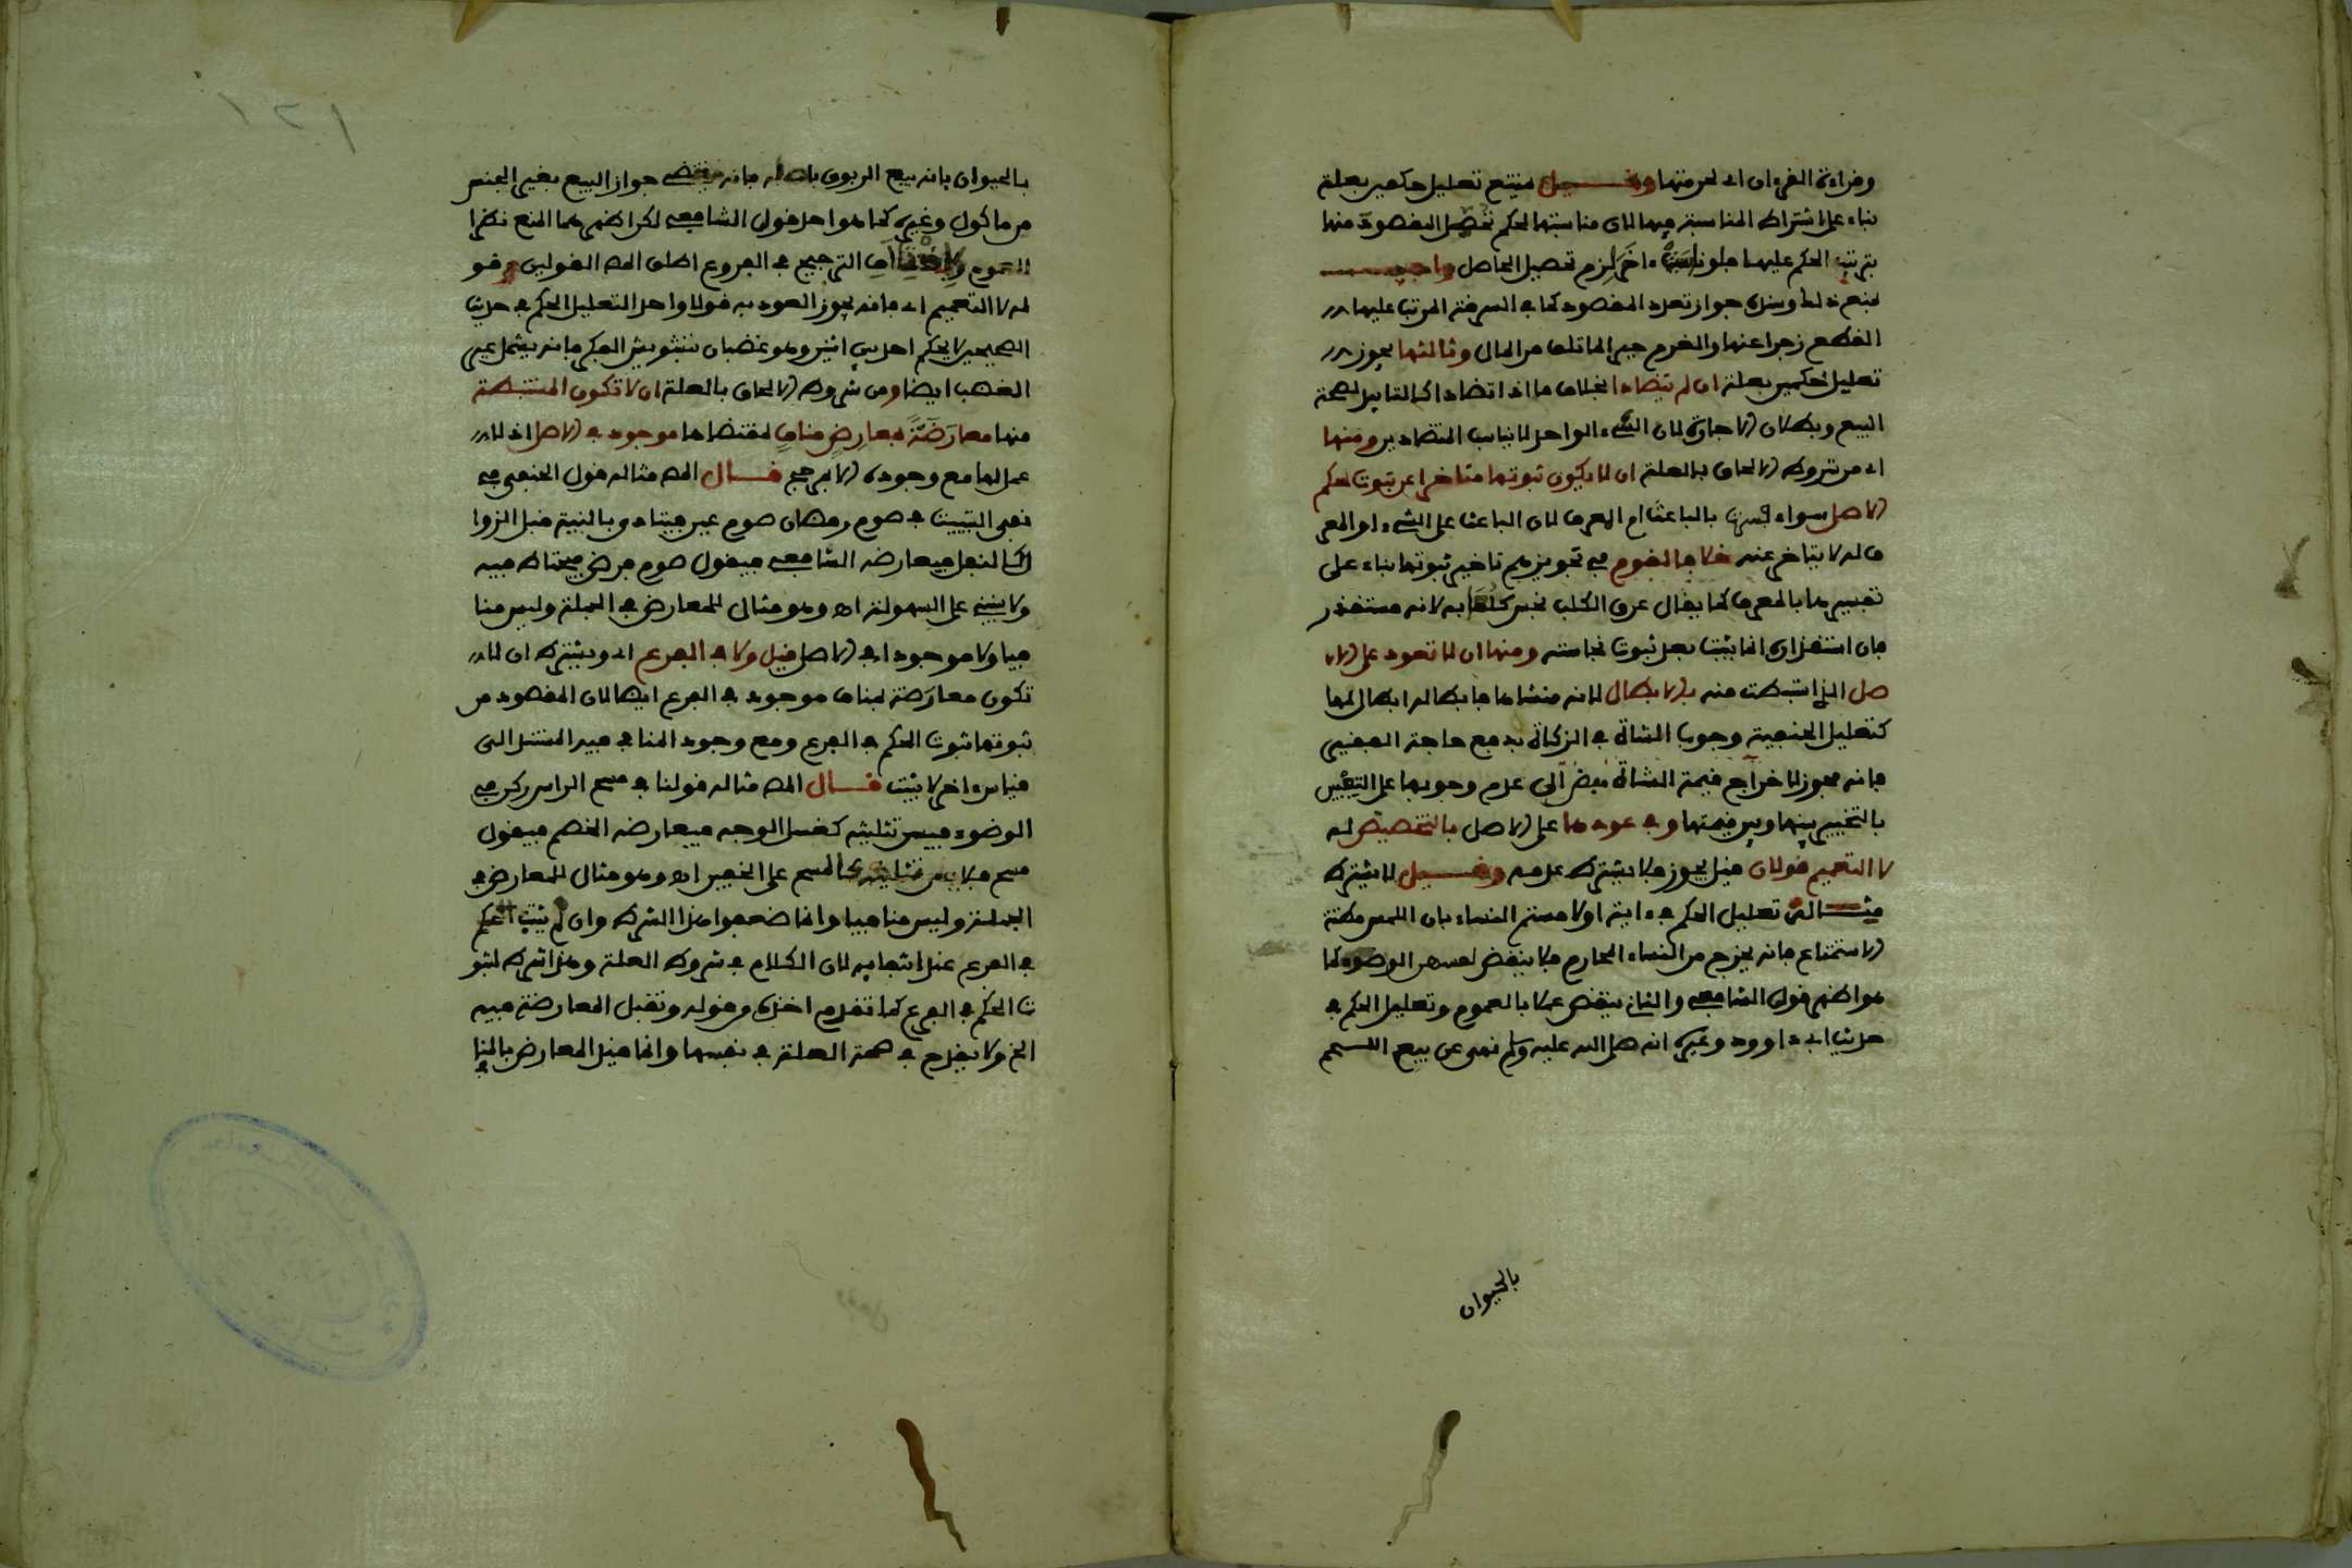 وقراءة القرءان اي لحرمتها وقيل يمتنع تعليل حكمين بعلة
بناء على اشتراط المناسبة فيها لان مناسبتها لحكم تحصل المقصود منها
بترتيب الحكم عليها فلو ناسبت ءاخر لزم تحصيل الحاصل واجيب
بمنع ذلك وسنده جواز تعدد المقصود كما في السرقة المرتب عليها
القطع زجرا عنها والغرم جبرا لما تلف من المال وثالثها يجوز
تعليل حكمين بعلة ان لم يتضادا بخلاف ما اذا تضادا كالتابيد لصحة
البيع وبطلان الاجارة لان الشيء الواحد لا يناسب المتضادين ومنها
اي من شروط الالحاق بالعلة ان لا يكون ثبوتها متاخرا عن ثبوت حكم
الاصل سواء فسرت بالباعث ام المعرف لان الباعث على الشيء او المعر
ف له لا يتاخر عنه خلافا لقوم في تجويزهم تاخير ثبوتها بناء على
تفسيرها بالمعرف كما يقال عرق الكلب نجس كلعابه لانه مستقذر
فان استقذاره انما يثبت بعد ثبوت نجاسته ومنها ان لا تعود على الا
صل الذي استنبطت منه بالابطال لانه منشاها فابطاله ابطال لها
كتعليل الحنفية وجوب الشاة في الزكاة بدفع حاجة الفقير
فانه مجوز لاخراج قيمة الشاة مفض الى عدم وجوبها على التعيين
بالتخيير بينها وبين قيمتها وفي عودها على الاصل بالتخصيص له
لا التعميم قولان قيل يجوز فلا يشترط عدمه وقيل لا يشترط
مثاله تعليل الحكم في ءاية او لامستم النساء بان اللمس مظنة
الاستمتاع فانه يخرج من النساء المحارم فلا ينقض لمسهن الوضوء كما
هو اظهر قولي الشافعي والثاني ينقض عملا بالعموم وتعليل الحكم في
حديث ابي داوود وغيره انه صلى الله عليه وسلم نهى عن بيع اللحم
بالحيوان
١٢١
بالحيوان بانه بيع الربوي باصله فانه يقتضي جواز البيع بغير الجنس
من ماكول وغيره كما هو احد قولي الشافعي لكن اظهرهما المنع نظرا
للعموم ولاختلاف الترجيح في الفروع اطلق المص القولين وقو
له لا التعميم اي فانه يجوز العود به قولا واحدا لتعليل الحكم في حديث
الصحيحين لا يحكم احد بين اثنين وهو غضبان بتشويش الفكر فانه يشمل غير
الغضب ايضا ومن شروط الالحاق بالعلة ان لا تكون المستنبطة
منها معارضة بمعارض مناف لمقتضاها موجود في الاصل اذ لا
عمل لها مع وجوده الا بمرجح قال المص مثاله قول الحنفي في
نفي التبييت في صوم رمضان صوم عين فيتادى بالنية قبل الزوا
ل كالنفل فيعارضه الشافعي فيقول صوم فرض فيحتاط فيه
ولا يبنى على السهولة اه وهو مثال للمعارض في الجملة وليس منا
فيا ولا موجودا في الاصل قيل ولا في الفرع اي ويشترط ان لا
تكون معارضة بمناف موجود في الفرع ايضا لان المقصود من
ثبوتها ثبوت الحكم في الفرع ومع وجود المنافي فيه المستند الى
قياس ءاخر لا يثبت قال المص مثاله قولنا في مسح الراس ركن في
الوضوء فيسن تثليثه كغسل الوجه فيعارضه الخصم فيقول
مسح فلا يسن تثليثه كالمسح على الخفين اه وهو مثال للمعارض في
الجملة وليس منافيا وانما ضعفوا هذا الشرط وان لم يثبت الحكم
في الفرع عند انتفائه لان الكلام في شروط العلة وهذا شرط لثبو
ت الحكم في الفرع كما تقدم اخذه من قوله وتقبل المعارضة فيه
الخ ولا يقدح في صحة العلة في نفسها وانما قيد المعارض بالمنا